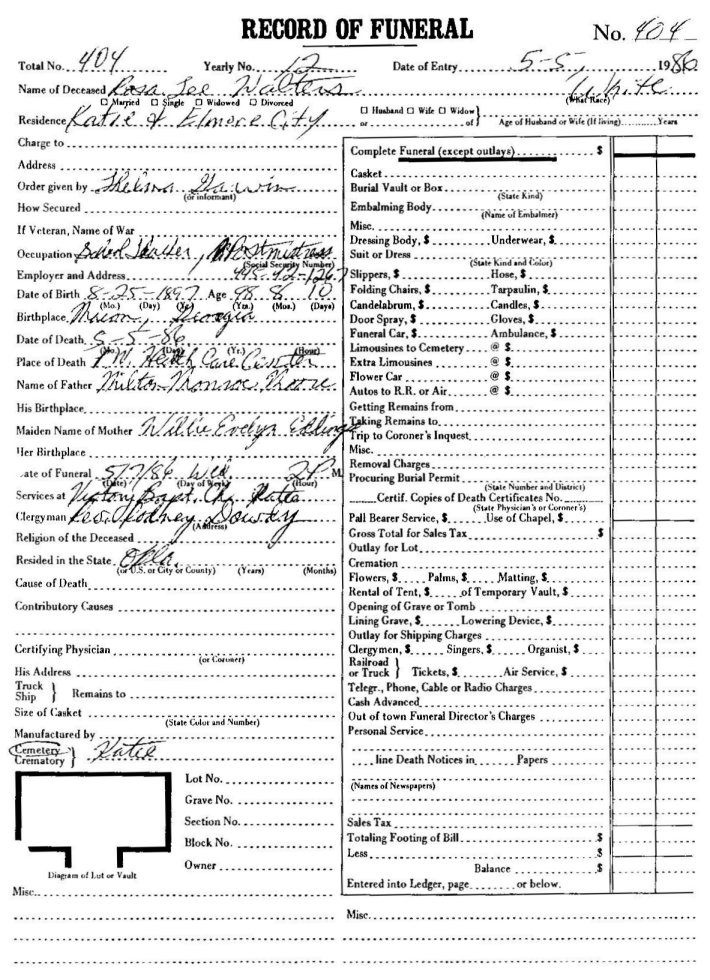 RECORD OF FUNERAL No. 404
Total No. 404 Yearly No. 12 Date of Entry 5-5, 1986
Name of Deceased Rosa Lee Walters White
(What Race)
☐ Married ☐ Single ☐ Widowed ☐ Divorced
☐ Husband ☐ Wife ☐ Widow }
or of } Age of Husband or Wife (If living) Years
Residence Katie & Elmore City
Charge to
Address
Order given by Thelma
(or informant)
How Secured
If Veteran, Name of War
Occupation School Teacher, Postmistress
(Social Security Number)
Employer and Address
Date of Birth 8-25-1897 Age 8 10
(Mo.) (Day) (Yr.) (Yrs.) (Mos.) (Days)
Birthplace Macon, Georgia
Date of Death 5-5-86
(Mo.) (Day) (Yr.) (Hour)
Place of Death Health Care Center
Name of Father Milton Monroe
His Birthplace
Maiden Name of Mother Willie Evelyn
Her Birthplace
ate of Funeral 5/7/86 Wed 2 P M.
(Date) (Day of Week) (Hour)
Services at Victory Bapt. Ch. Katie
Clergyman Rev. Rodney Dowdy
(Address)
Religion of the Deceased
Resided in the State Okla.
(or U.S. or City or County) (Years) (Months)
Cause of Death
Contributory Causes
Certifying Physician
(or Coroner)
His Address
Truck
Ship } Remains to
Size of Casket
(State Color and Number)
Manufactured by
Cemetery
Crematory } Katie
Lot No.
Grave No.
Section No.
Block No.
Owner
Diagram of Lot or Vault
Misc.
Complete Funeral (except outlays) $
Casket
Burial Vault or Box
(State Kind)
Embalming Body
(Name of Embalmer)
Misc.
Dressing Body, $ Underwear, $
Suit or Dress
(State Kind and Color)
Slippers, $ Hose, $
Folding Chairs, $ Tarpaulin, $
Candelabrum, $ Candles, $
Door Spray, $ Gloves, $
Funeral Car, $ Ambulance, $
Limousines to Cemetery @ $
Extra Limousines @ $
Flower Car @ $
Autos to R.R. or Air @ $
Getting Remains from
Taking Remains to
Trip to Coroner's Inquest
Misc.
Removal Charges
Procuring Burial Permit
(State Number and District)
Certif. Copies of Death Certificates No.
(State Physician's or Coroner's)
Pall Bearer Service, $ Use of Chapel, $
Gross Total for Sales Tax $
Outlay for Lot
Cremation
Flowers, $ Palms, $ Matting, $
Rental of Tent, $ of Temporary Vault, $
Opening of Grave or Tomb
Lining Grave, $ Lowering Device, $
Outlay for Shipping Charges
Clergymen, $ Singers, $ Organist, $
Railroad
or Truck } Tickets, $ Air Service, $
Telegr., Phone, Cable or Radio Charges
Cash Advanced
Out of town Funeral Director's Charges
Personal Service
line Death Notices in Papers
(Names of Newspapers)
Sales Tax
Totaling Footing of Bill $
Less $
Balance $
Entered into Ledger, page or below.
Misc.